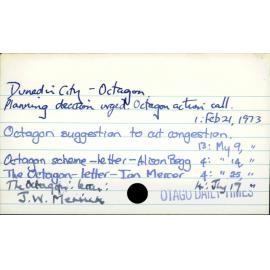 Dunedin City - Octagon.
Planning decision urged: Octagon action call.
1: Feb 21, 1973
Octagon suggestion to cut congestion.
13: My 9, "
Octagon scheme - letter - Alison Begg 4: " 14, "
The Octagon - letter - Ian Mercer 4: " 25, "
The Octagon: letter: 4: Jy 17 "
J.W.
OTAGO DAILY TIMES